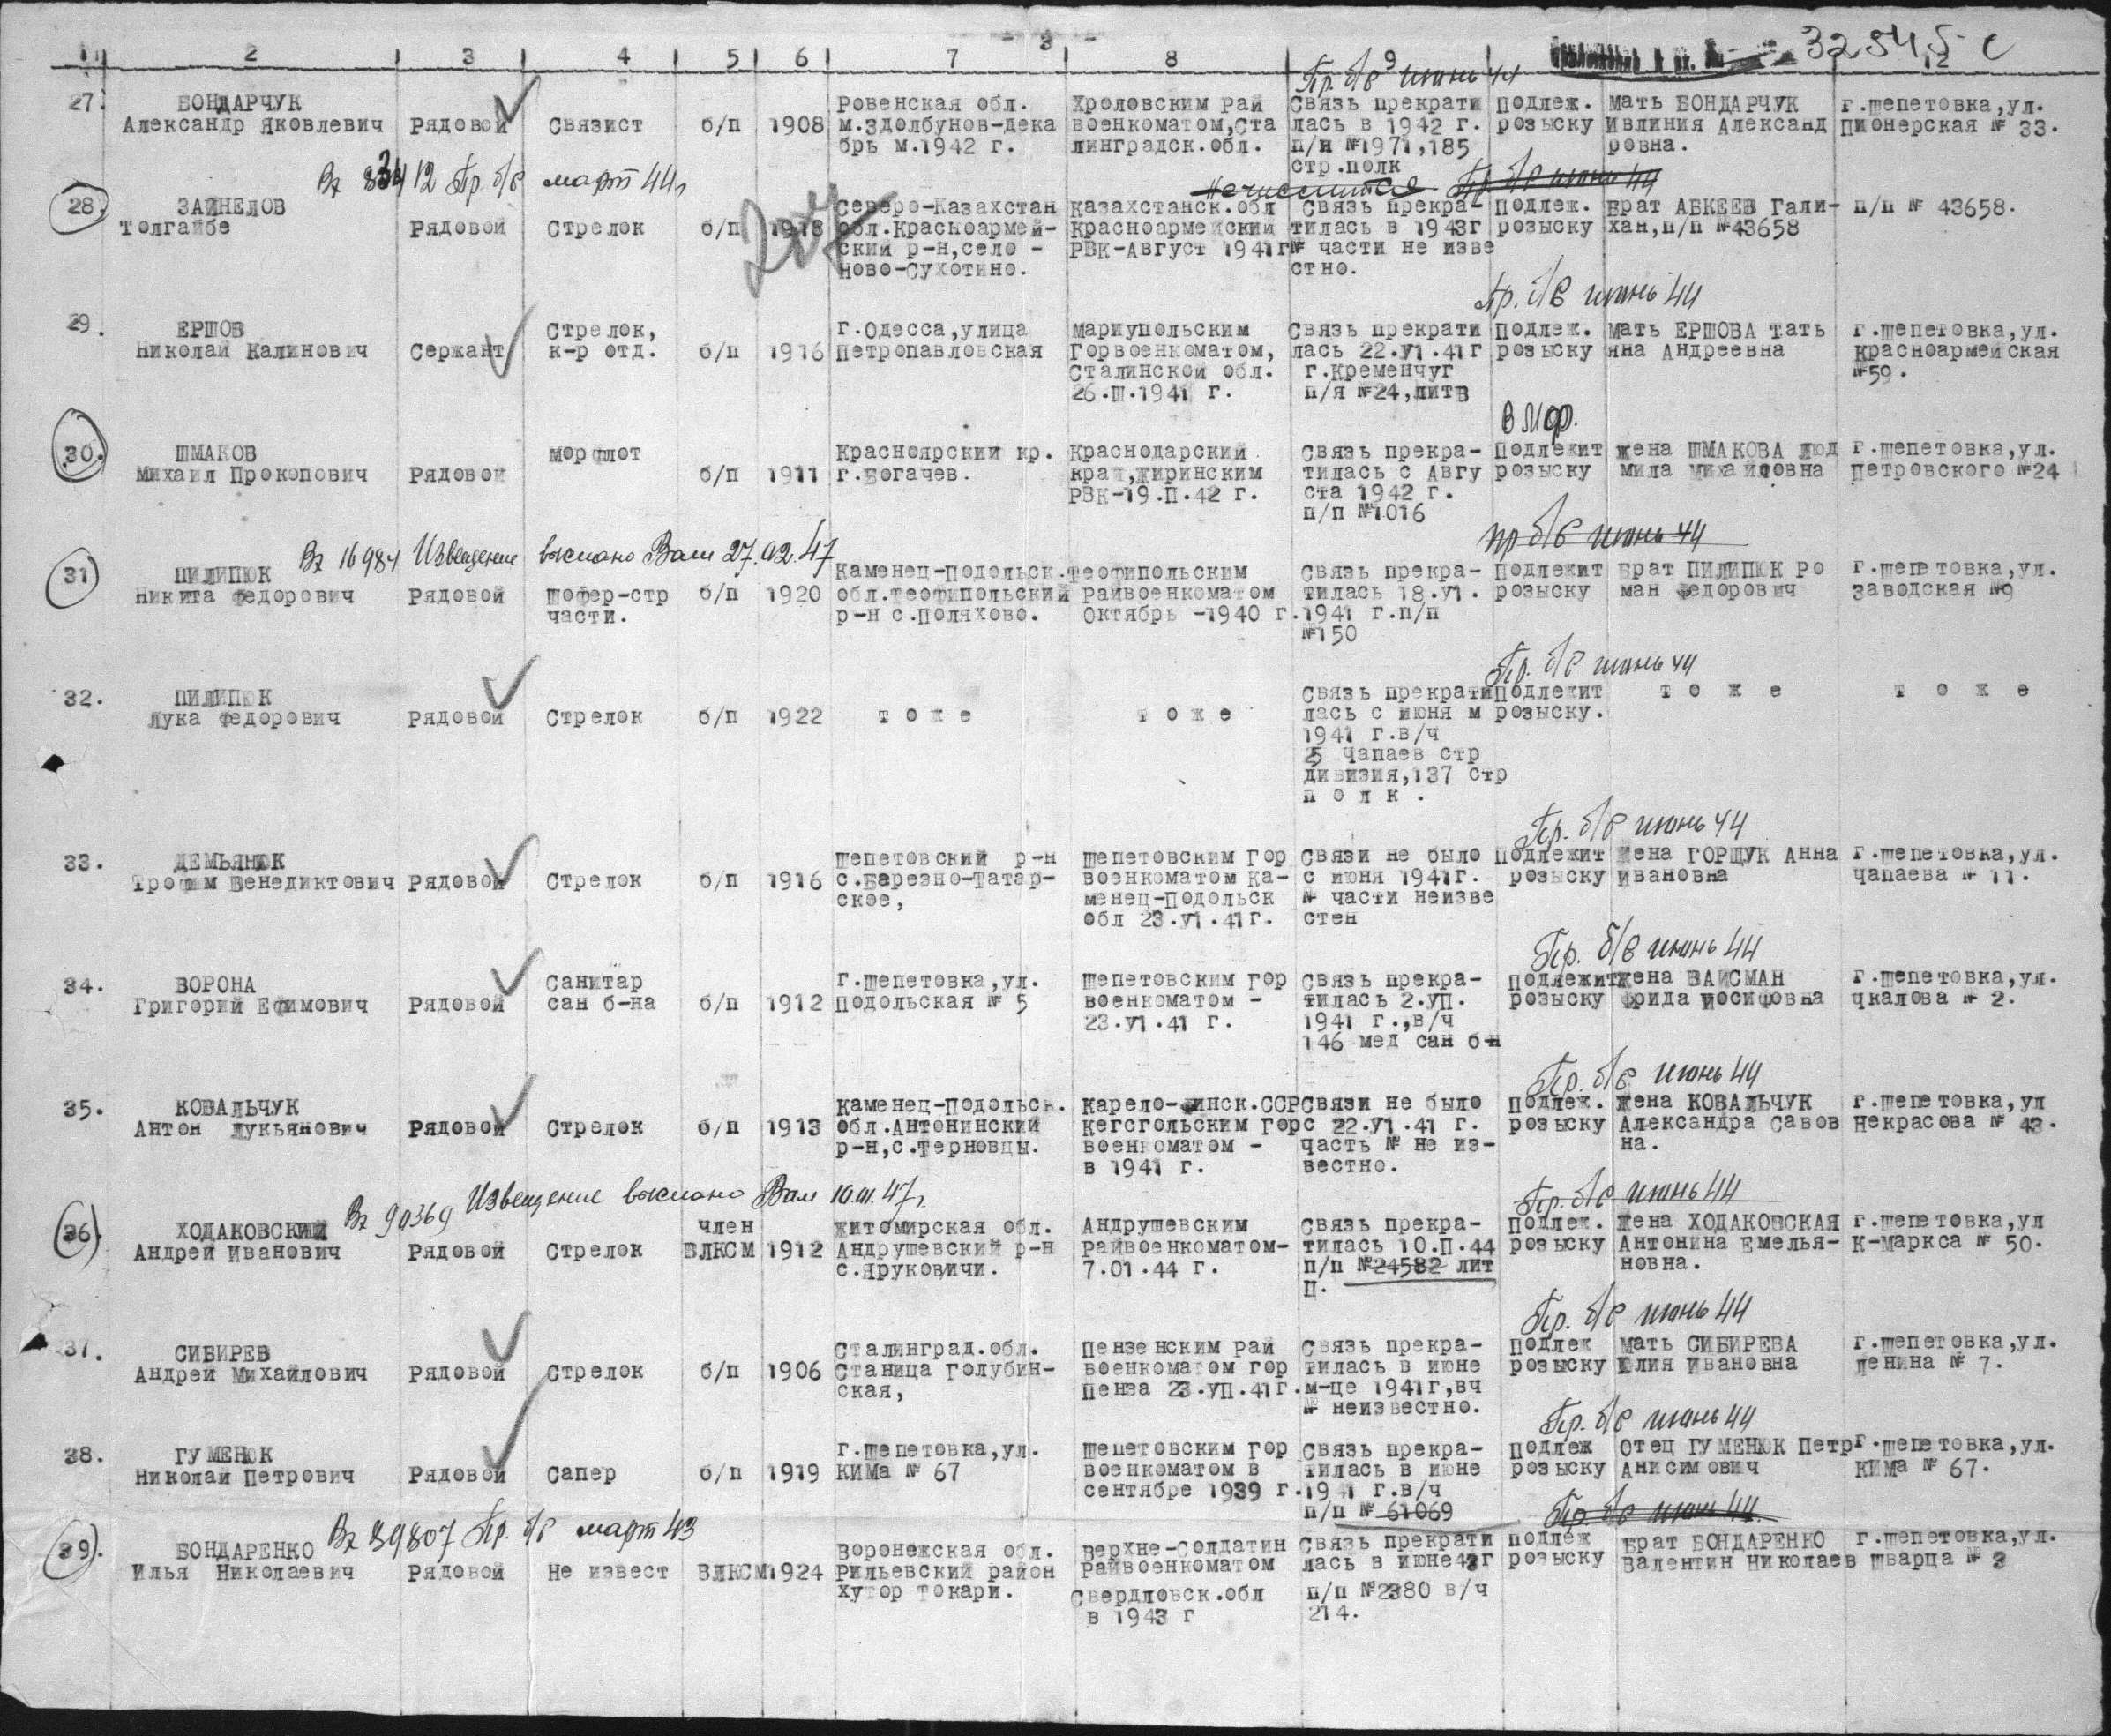 - 3 -
32545 с
1 2 3 4 5 6 7 8 9 12
Пр. б/в июнь 44
27. БОНДАРЧУК Ровенская обл. Хроловским рай Связь прекрати Подлеж. Мать БОНДАРЧУК г.Шепетовка,ул.
Александр Яковлевич Рядовой Связист б/п 1908 м.Здолбунов-дека военкоматом,Ста лась в 1942 г. розыску Ивлиния Александ Пионерская № 33.
брь м.1942 г. линградск.обл. п/я №1971,185 ровна.
стр.полк
Вх 83412 Пр. б/в март 44г Пр. б/в июнь 44
28. ЗАЙНЕЛОВ Северо-Казахстан Казахстанск.обл Связь прекра- Подлеж. Брат АБКЕЕВ Гали- п/п № 43658.
Толгайбе Рядовой Стрелок б/п 1918 обл.Красноармей- Красноармейский тилась в 1943г розыску хан,п/п №43658
ский р-н,село - РВК-Август 1941г № части не изве
Ново-Сухотино. стно.
Пр. б/в июнь 44
29. ЕРШОВ Стрелок, г.Одесса,улица Мариупольским Связь прекрати Подлеж. Мать ЕРШОВА Тать г.Шепетовка,ул.
Николай Калинович Сержант к-р отд. б/п 1916 Петропавловская Горвоенкоматом, лась 22.У1.41г розыску яна Андреевна Красноармейская
Сталинской обл. г.Кременчуг №59.
26.Ш.1941 г. п/я №24,литв
в Мф.
30. ШМАКОВ морфлот Красноярский кр. Краснодарский Связь прекра- Подлежит жена ШМАКОВА Люд г.Шепетовка,ул.
Михаил Прокопович Рядовой б/п 1911 г.Богачев. край,Жиринским тилась с Авгу розыску мила Михайловна Петровского №24
РВК-19.П.42 г. ста 1942 г.
п/п №1016
Вх 16984 Извещение выслано Вам 27.02.47 пр б/в июнь 44
31 ПИЛИПЮК Каменец-Подольск. Теофипольским Связь прекра- Подлежит Брат ПИЛИПЮК Ро г.Шепетовка,ул.
Никита Федорович Рядовой шофер-стр б/п 1920 обл.Теофипольский Райвоенкоматом тилась 18.У1. розыску ман Федорович Заводская №9
части. р-н с.Поляхово. Октябрь -1940 г. 1941 г.п/п
№150
Пр. б/в июнь 44
32. ПИЛИПЮК Связь прекрати Подлежит т о ж е т о ж е
Лука Федорович Рядовой Стрелок б/п 1922 т о ж е т о ж е лась с июня м розыску.
1941 г.в/ч
25 Чапаев стр
дивизия,137 стр
п о л к .
Пр. б/в июнь 44
33. ДЕМЬЯНЮК Шепетовский р-н Шепетовским Гор Связи не было Подлежит Жена ГОРЩУК Анна г.Шепетовка,ул.
Трофим Венедиктович Рядовой Стрелок б/п 1916 с.Барезно-Татар- военкоматом Ка- с июня 1941г. розыску Ивановна Чапаева № 11.
ское, менец-Подольск № части неизве
обл 23.У1.41г. стен
Пр. б/в июнь 44
34. ВОРОНА Санитар г.Шепетовка,ул. Шепетовским Гор Связь прекра- Подлежит жена ВАЙСМАН г.Шепетовка,ул.
Григорий Ефимович Рядовой сан б-на б/п 1912 Подольская № 5 военкоматом - тилась 2.УП. розыску Фрида Иосифовна Чкалова № 2.
23.У1.41 г. 1941 г.,в/ч
146 мед сан б-н
Пр. б/в июнь 44
35. КОВАЛЬЧУК Каменец-Подольск. Карело-Финск.ССР Связи не было Подлеж. жена КОВАЛЬЧУК г.Шепетовка,ул
Антон Лукьянович Рядовой Стрелок б/п 1913 обл.Антонинский Кегсгольским Гор с 22.У1.41 г. розыску Александра Савов Некрасова № 43.
р-н,с.Терновцы. военкоматом - часть № не из- на.
в 1941 г. вестно.
Вх 90369 Извещение выслано Вам 10.III.47г. Пр. б/в июнь 44
36. ХОДАКОВСКИЙ член Житомирская обл. Андрушевским Связь прекра- Подлеж. Жена ХОДАКОВСКАЯ г.Шепетовка,ул
Андрей Иванович Рядовой Стрелок ВЛКСМ 1912 Андрушевский р-н Райвоенкоматом- тилась 10.П.44 розыску Антонина Емелья- К-Маркса № 50.
с.Яруковичи. 7.01.44 г. п/п №24582 лит новна.
П.
Пр. б/в июнь 44
37. СИБИРЕВ Сталинград.обл. Пензенским Рай Связь прекра- Подлеж Мать СИБИРЕВА г.Шепетовка,ул.
Андрей Михайлович Рядовой Стрелок б/п 1906 Станица Голубин- военкоматом гор тилась в июне розыску Юлия Ивановна Ленина № 7.
ская, Пенза 23.УП.41г. м-це 1941г,вч
№ неизвестно.
Пр. б/в июнь 44
38. ГУМЕНЮК г.Шепетовка,ул. Шепетовским Гор Связь прекра- Подлеж Отец ГУМЕНЮК Петр г.Шепетовка,ул.
Николай Петрович Рядовой Сапер б/п 1919 КИМа № 67 военкоматом в тилась в июне розыску Анисимович КИМа № 67.
сентябре 1939 г. 1941 г.в/ч
п/п № 61069
Вх 39807 Пр. б/в март 43 Пр. б/в июнь 44.
39). БОНДАРЕНКО Воронежская обл. Верхне-Солдатин Связь прекрати подлеж Брат БОНДАРЕНКО г.Шепетовка,ул.
Илья Николаевич Рядовой Не извест ВЛКСМ 1924 Рильевский район Райвоенкоматом лась в июне43г розыску Валентин Николаев Шварца № 3
Хутор Токари. Свердловск.обл п/п №2380 в/ч
в 1943 г 214.